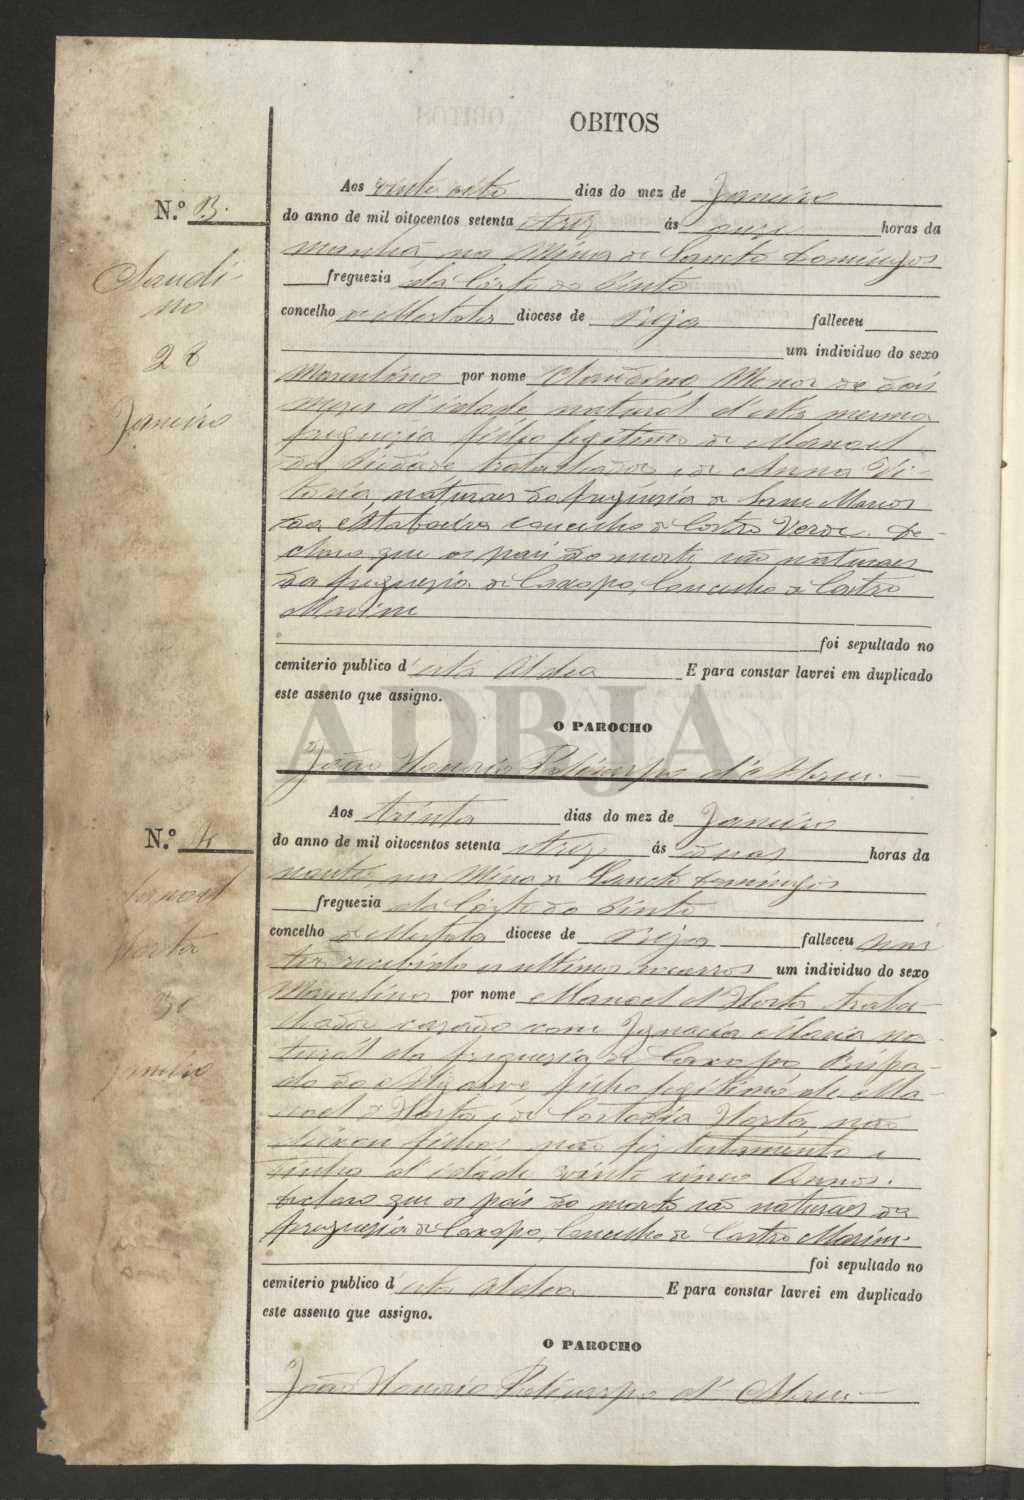 OBITOS
N.º 3.
Claudi-
no
28
Janeiro
Aos vinte oito dias do mez de Janeiro
do anno de mil oitocentos setenta e trez ás onze horas da
manhã, na Mina de Sancto Domingos
freguezia da Córte do Pinto
concelho de Mertola diocese de Beja falleceu
um individuo do sexo
Masculino por nome Claudino Menor de dois
mezes d'idade natural d'esta mesma
freguezia filho legitimo de Manoel
da Piedade trabalhador e de Anna Vi-
toria, naturaes da freguezia de Sam Marcos
da Atabueira concelho de Castro Verde. De-
claro que os pais do morto são naturaes
da freguezia de Caxopo, Concelho de Castro
Marim
foi sepultado no
cemiterio publico d'esta Aldea E para constar lavrei em duplicado
este assento que assigno.
O PAROCHO
João Honorio Policarpo d'Abreu
N.º 4
Manoel
Horta
30
Janeiro
Aos trinta dias do mez de Janeiro
do anno de mil oitocentos setenta e trez ás duas horas da
noute, na Mina de Sancto Domingos
freguezia da Córte do Pinto
concelho de Mertola diocese de Beja falleceu sem
ter recebido os ultimos socorros um individuo do sexo
Masculino por nome Manoel d'Horta traba-
lhador cazado com Ignacia Maria na-
tural da freguezia de Caxopo, Bispa-
do do Algarve filho legitimo de Ma-
noel d'Horta e de Custodia Horta, não
deixou filhos, não fez testamento e
tinha d'idade vinte cinco Annos.
Declaro que os pais do morto são naturaes da
freguezia de Caxopo, Concelho de Castro Marim.
foi sepultado no
cemiterio publico d'esta Aldea E para constar lavrei em duplicado
este assento que assigno.
O PAROCHO
João Honorio Policarpo d'Abreu
ADBJA